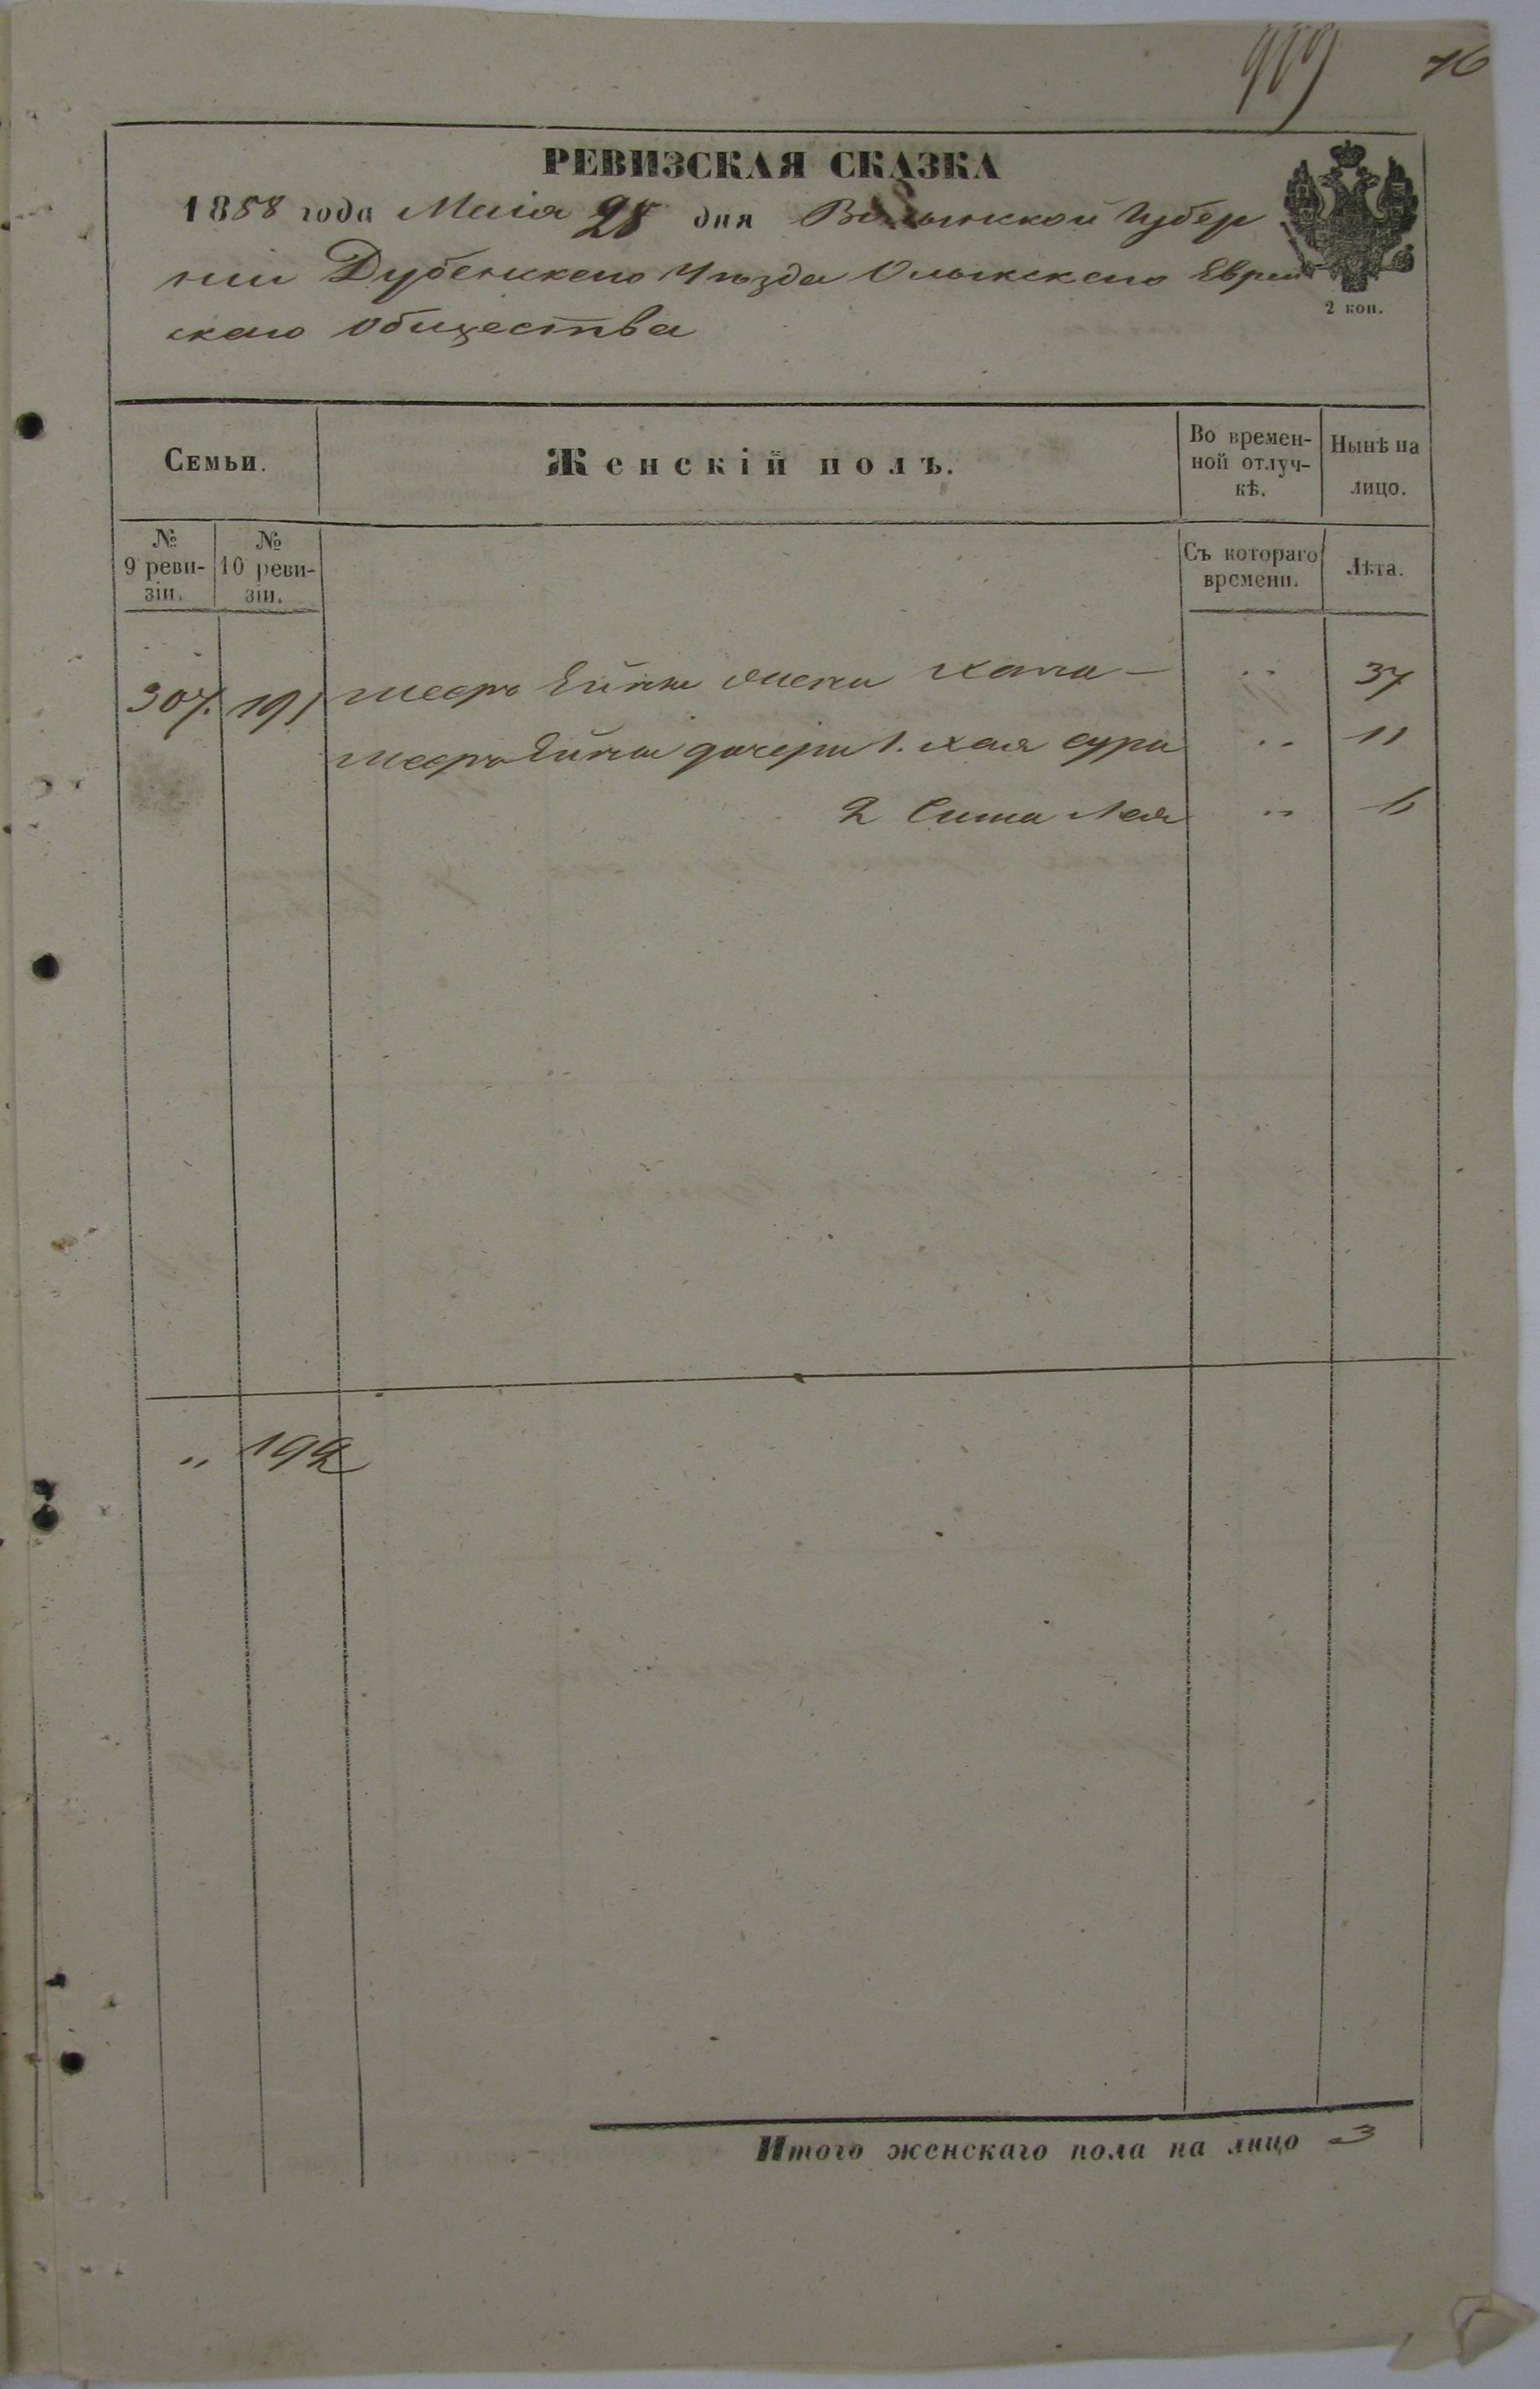 989 76
РЕВИЗСКАЯ СКАЗКА
1858 года Маія 28 дня Волынской Губер
ніи Дубенскаго Уѣзда Олыкскаго Еврей
скаго Общества
2 коп.
Семьи.
Женскій полъ.
Во времен-
ной отлуч-
кѣ.
Нынѣ на
лицо.
№
9 реви-
зіи.
№
10 реви-
зіи.
Съ котораго
времени.
Лѣта.
307. 191 жена Хана — " 37
дочери 1. Хая Сура " 11
2 Лея " 6
" 192
Итого женскаго пола на лицо 3